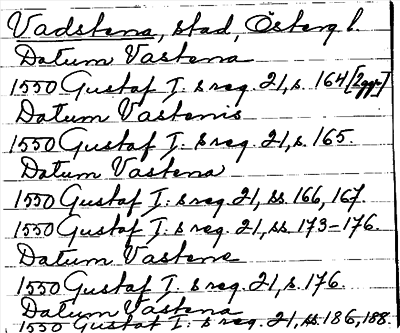 Vadstena, stad, Österg l.
Datum Vastena
1550 Gustaf I: s reg. 21, s. 164 [2ggr]
Datum Vastenis
1550 Gustaf I: s reg. 21, s. 165.
Datum Vastena
1550 Gustaf I: s reg. 21, ss. 166, 167.
1550 Gustaf I: s reg. 21, ss. 173-176.
Datum Vastene
1550 Gustaf I: s reg. 21, s. 176.
Datum Vastena
1550 Gustaf I: s reg. 21, ss 186, 188.